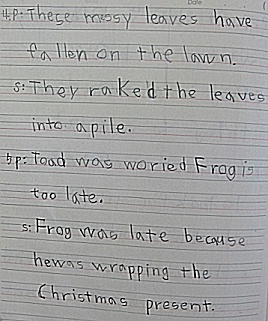 4.p: These messy leaves have
fallen on the lawn.
s: They raked the leaves
into a pile.
5.p: Toad was woried Frog is
too late.
s: Frog was late because
he was wrapping the
Christmas present.